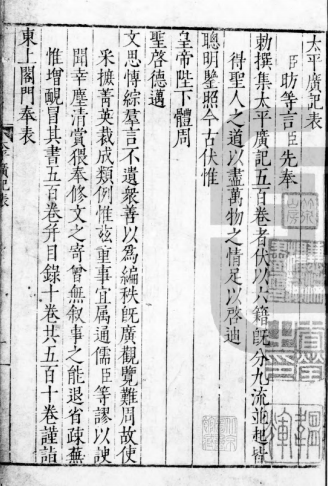 太平廣記表
臣昉等言臣先奉
勅撰集太平廣記五百卷者伏以六籍既分九流並起皆
得聖人之道以盡萬物之情足以啓迪
聰明鑒照今古伏惟
皇帝陛下體周
聖啓德邁
文思博綜羣言不遺衆善以爲編秩既廣觀覽難周故使
采摭菁英裁成類例惟兹重事宜属通儒臣等謬以諛
聞幸塵清賞猥奉修文之寄曾無叙事之能退省疎蕪
惟增靦冒其書五百卷并目錄十卷共五百十卷謹詣
東上閤門奉表